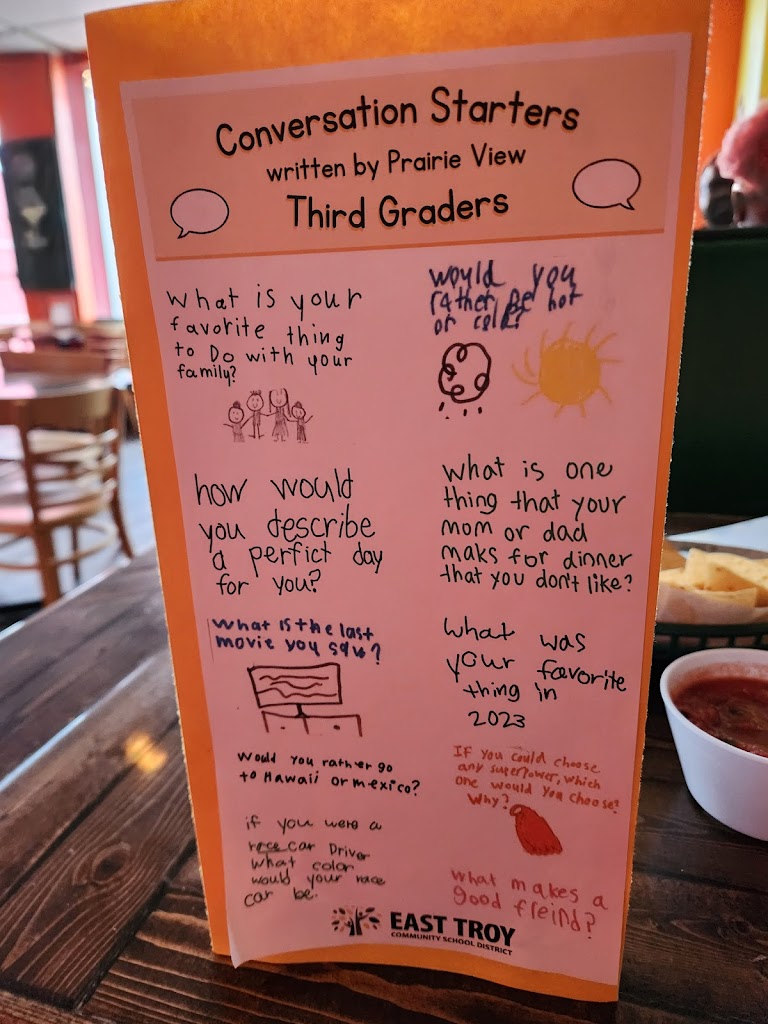 Conversation Starters
written by Prairie View
Third Graders
What is your
favorite thing
to Do with your
family?
would you
rather be hot
or cold?
how would
you describe
a perfict day
for you?
What is one
thing that your
mom or dad
maks for dinner
that you don't like?
What is the last
movie you saw?
What was
your favorite
thing in
2023
Would you rather go
to Hawaii or mexico?
IF you could choose
any superpower, which
one would you choose?
Why?
if you were a
race car Driver
What color
would your race
car be.
What makes a
good freind?
EAST TROY
COMMUNITY SCHOOL DISTRICT